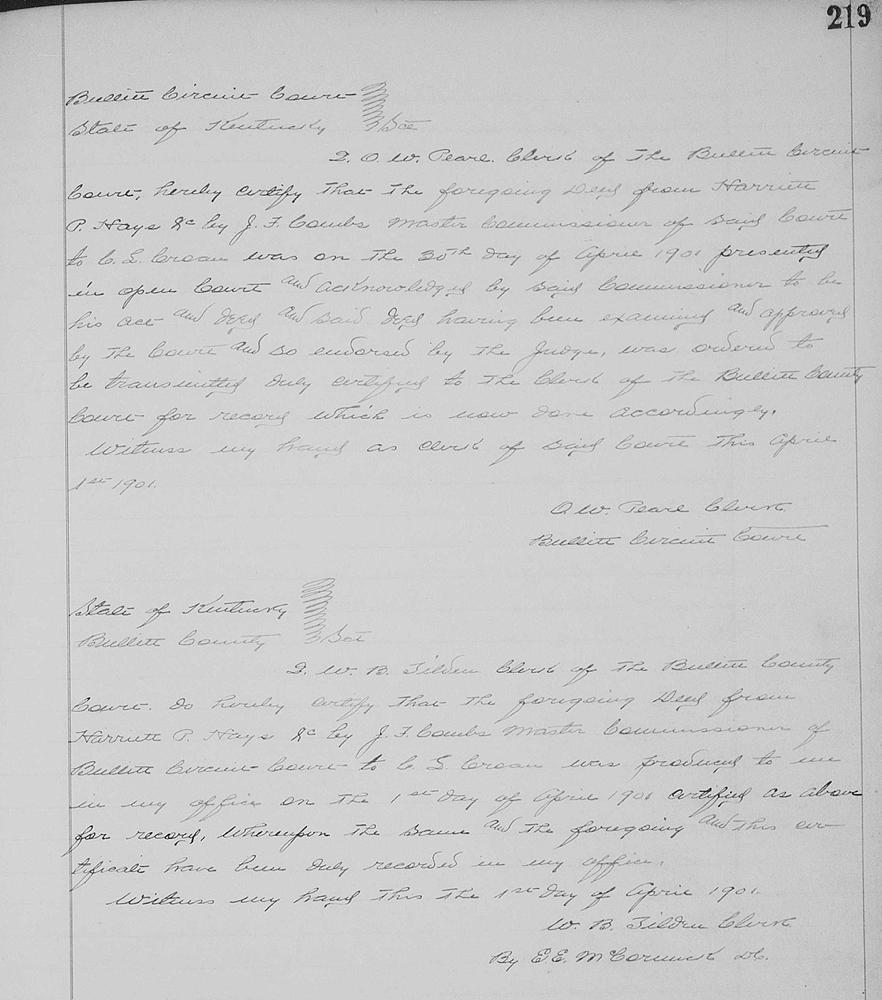 219
Bullitt Circuit Court
State of Kentucky Sct
I, O. W. Pearl, Clerk of the Bullitt Circuit
Court, hereby certify that the foregoing Deed from Harriett
P. Hays &c by J. F. Combs Master Commissioner of said Court
to C. L. Croan was on the 30th day of April 1901 presented
in open Court and acknowledged by said Commissioner to be
his act and deed and said deed having been examined and approved
by the Court and so endorsed by the Judge, was ordered to
be transmitted duly certified to the Clerk of the Bullitt County
Court for record which is now done accordingly.
Witness my hand as clerk of said Court this April
1st 1901.
O. W. Pearl Clerk
Bullitt Circuit Court
State of Kentucky
Bullitt County Sct
I, W. B. Tilden Clerk of the Bullitt County
Court. do hereby certify that the foregoing Deed from
Harriett P. Hays &c by J. F. Combs Master Commissioner of
Bullitt Circuit Court to C. L. Croan was produced to me
in my office on the 1st day of April 1901 certified as above
for record, whereupon the same and the foregoing and this cer-
tificate have been duly recorded in my office.
Witness my hand this the 1st day of April 1901.
W. B. Tilden Clerk
By E. E. McCormick D.C.